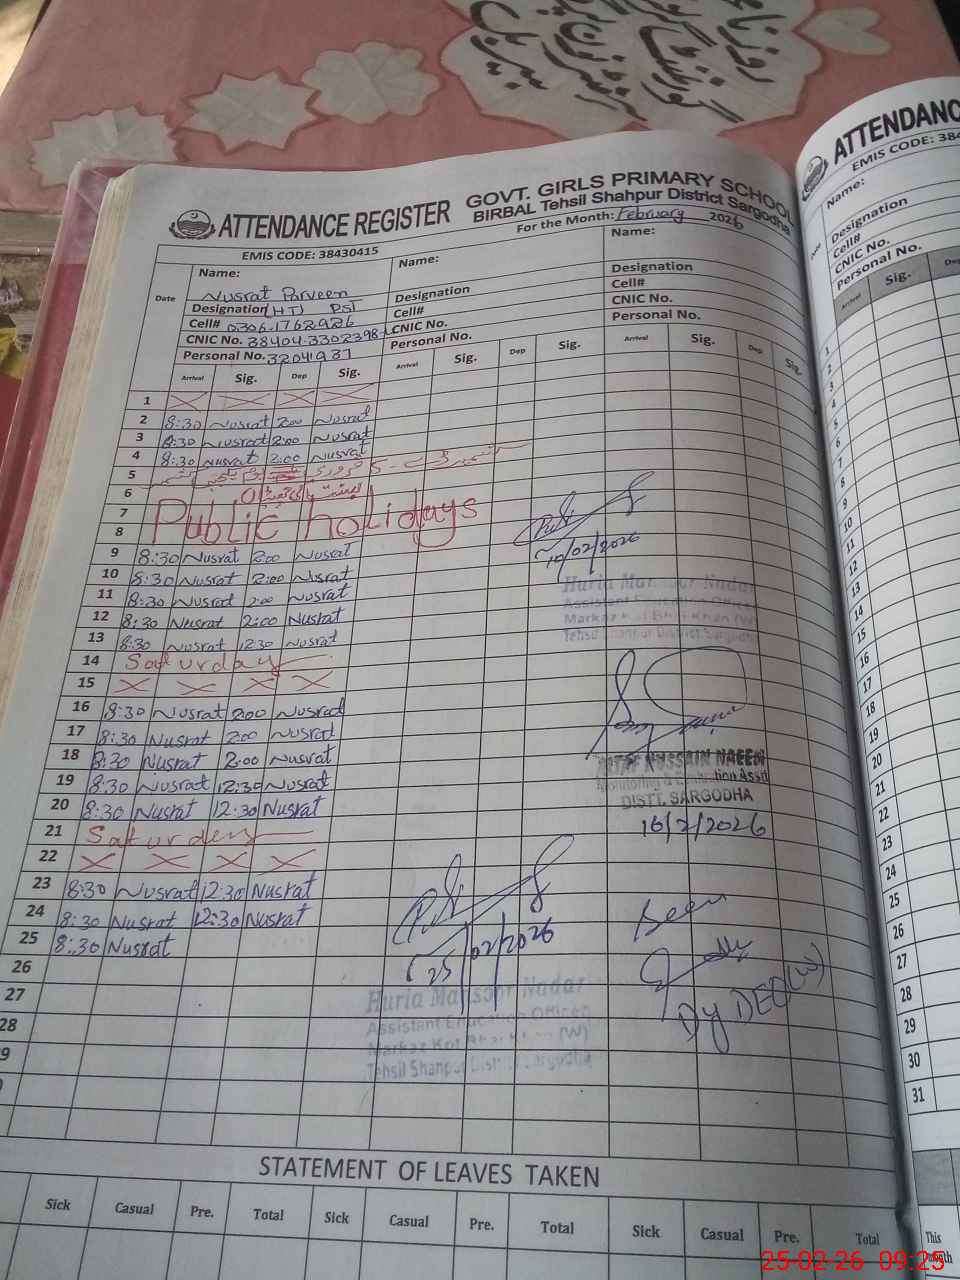 ATTENDANCE REGISTER
GOVT. GIRLS PRIMARY SCHOOL
BIRBAL Tehsil Shahpur District Sargodha
EMIS CODE: 38430415
For the Month: February 2026
Date
Name: Nusrat Parveen
Designation (HT) PST
Cell# 0306-1762926
CNIC No. 38404-3302398-
Personal No. 3204937
Name:
Designation
Cell#
CNIC No.
Personal No.
Name:
Designation
Cell#
CNIC No.
Personal No.
Arrival Sig. Dep Sig. Arrival Sig. Dep Sig. Arrival Sig. Dep Sig.
1
2 8:30 Nusrat 2:00 Nusrat
3 8:30 Nusrat 2:00 Nusrat
4 8:30 Nusrat 2:00 Nusrat
5
6
7 Public holidays
8
9 8:30 Nusrat 2:00 Nusrat
10 8:30 Nusrat 2:00 Nusrat
11 8:30 Nusrat 2:00 Nusrat
12 8:30 Nusrat 2:00 Nusrat
13 8:30 Nusrat 12:30 Nusrat
14 Saturday
15
16 8:30 Nusrat 2:00 Nusrat
17 8:30 Nusrat 2:00 Nusrat
18 8:30 Nusrat 2:00 Nusrat
19 8:30 Nusrat 12:30 Nusrat
20 8:30 Nusrat 12:30 Nusrat
21 Saturday
22
23 8:30 Nusrat 12:30 Nusrat
24 8:30 Nusrat 12:30 Nusrat
25 8:30 Nusrat
26
27
28
9
/02/2026
Huria Mansoor Nadar
Assistant Education Officer
Markaz Kot (W)
Tehsil Shahpur District Sargodha
HUSSAIN NAEEM
DISTT. SARGODHA
16/2/2026
25/02/2026
Huria Mansoor Nadar
Assistant Education Officer
Markaz Kot (W)
Tehsil Shahpur District Sargodha
Seen
Dy DEO(W)
STATEMENT OF LEAVES TAKEN
Sick Casual Pre. Total Sick Casual Pre. Total Sick Casual Pre. Total
ATTENDANC
EMIS CODE: 384
Name:
Designation
Cell#
CNIC No.
Personal No.
Date
Arrival Sig. Dep
1
2
3
4
5
6
7
8
9
10
11
12
13
14
15
16
17
18
19
20
21
22
23
24
25
26
27
28
29
30
31
This
25-02-26 09:25